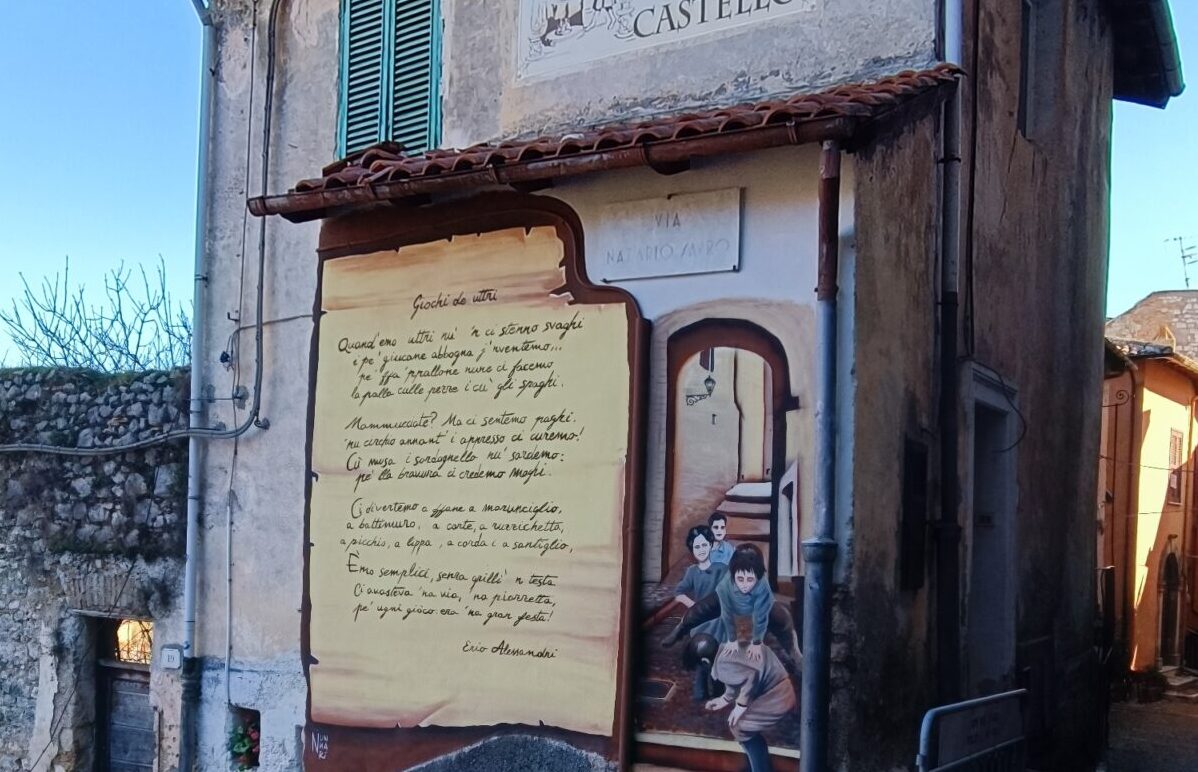 CASTELLO
VIA
NAZARIO SAURO
Giochi de uttri
Quand'emo uttri nu' 'n ci stenno svaghi
i pe' giucane abbogna j'nventemo...
pe' ffa 'pallone nure ci facemo
la palla culle pezze i cu' gli spaghi.
Mammucciate? Ma ci sentemo paghi.
'nu circhio annant' i appresso ci curemo!
Cù musa i sardagnella nu' sardemo:
pe' lla bravura ci credemo maghi.
Ci divertemo a ffane a marunciglio,
a battimuro, a carte, a ruzzichetta,
a picchio, a lippa, a corda i a santiglio,
Emo semplici, senza grilli 'n testa.
Ci avasteva 'na via, 'na piazzetta,
pe' ugni gioco: era 'na gran festa!
Erio Alessandri
19